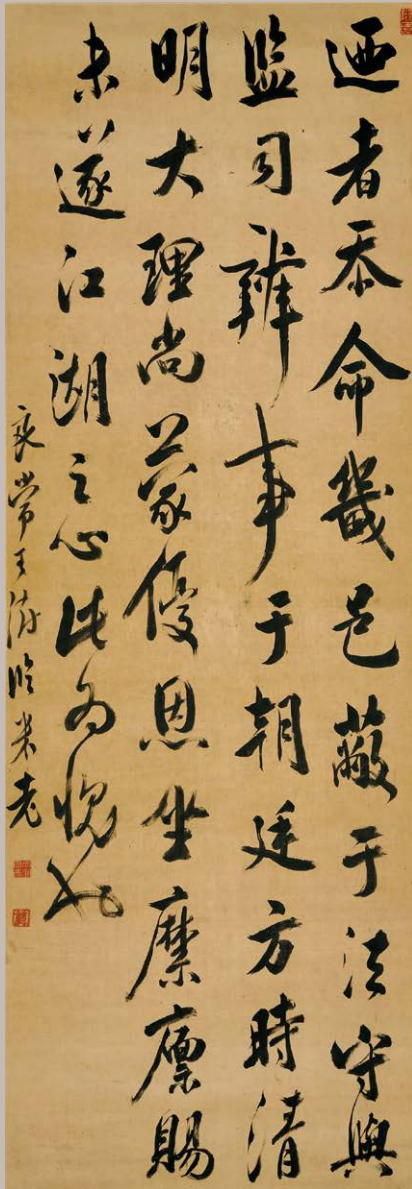 迺者忝命畿邑蔽于法守與
監司辨事于朝廷方時清
明大理尚蒙優恩坐縻廩賜
未遂江湖之心此為愧也
良常王澍臨米老